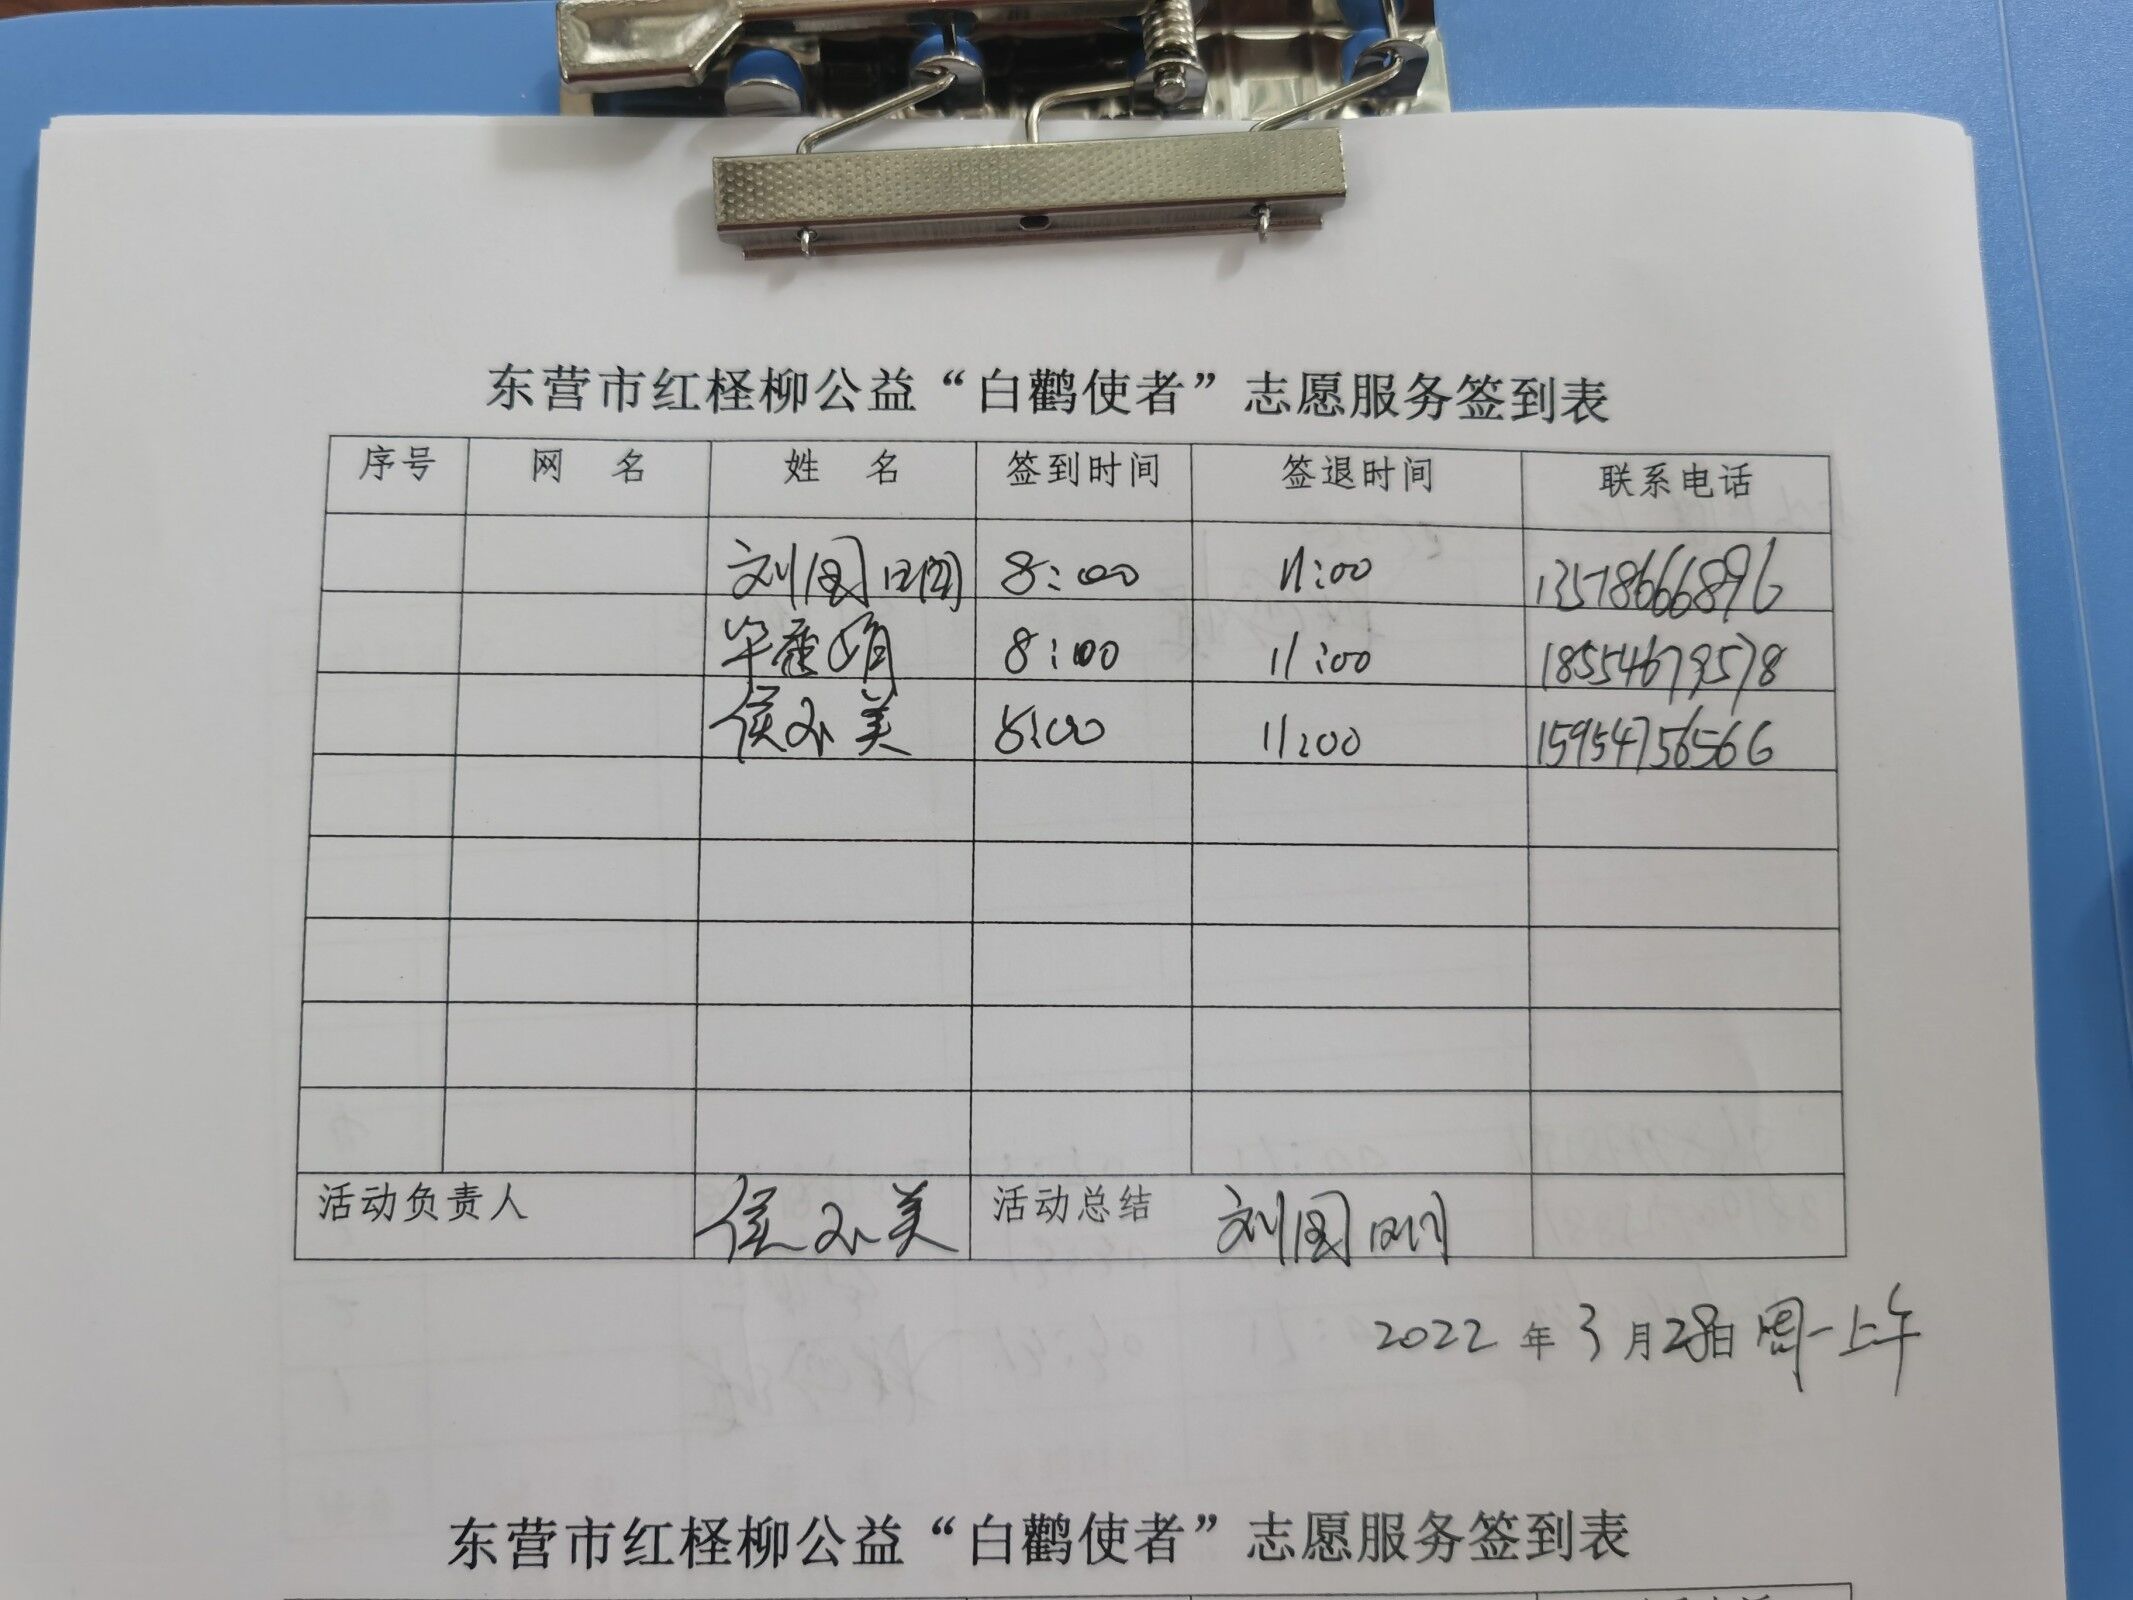 东营市红柽柳公益“白鹳使者”志愿服务签到表
序号 网 名 姓 名 签到时间 签退时间 联系电话
刘国 8:00 11:00 13578666896
毕 娟 8:00 11:00 18554679578
侯小美 8:00 11:00 15954756566
活动负责人 侯小美 活动总结 刘国
2022年3月28日周一上午
东营市红柽柳公益“白鹳使者”志愿服务签到表